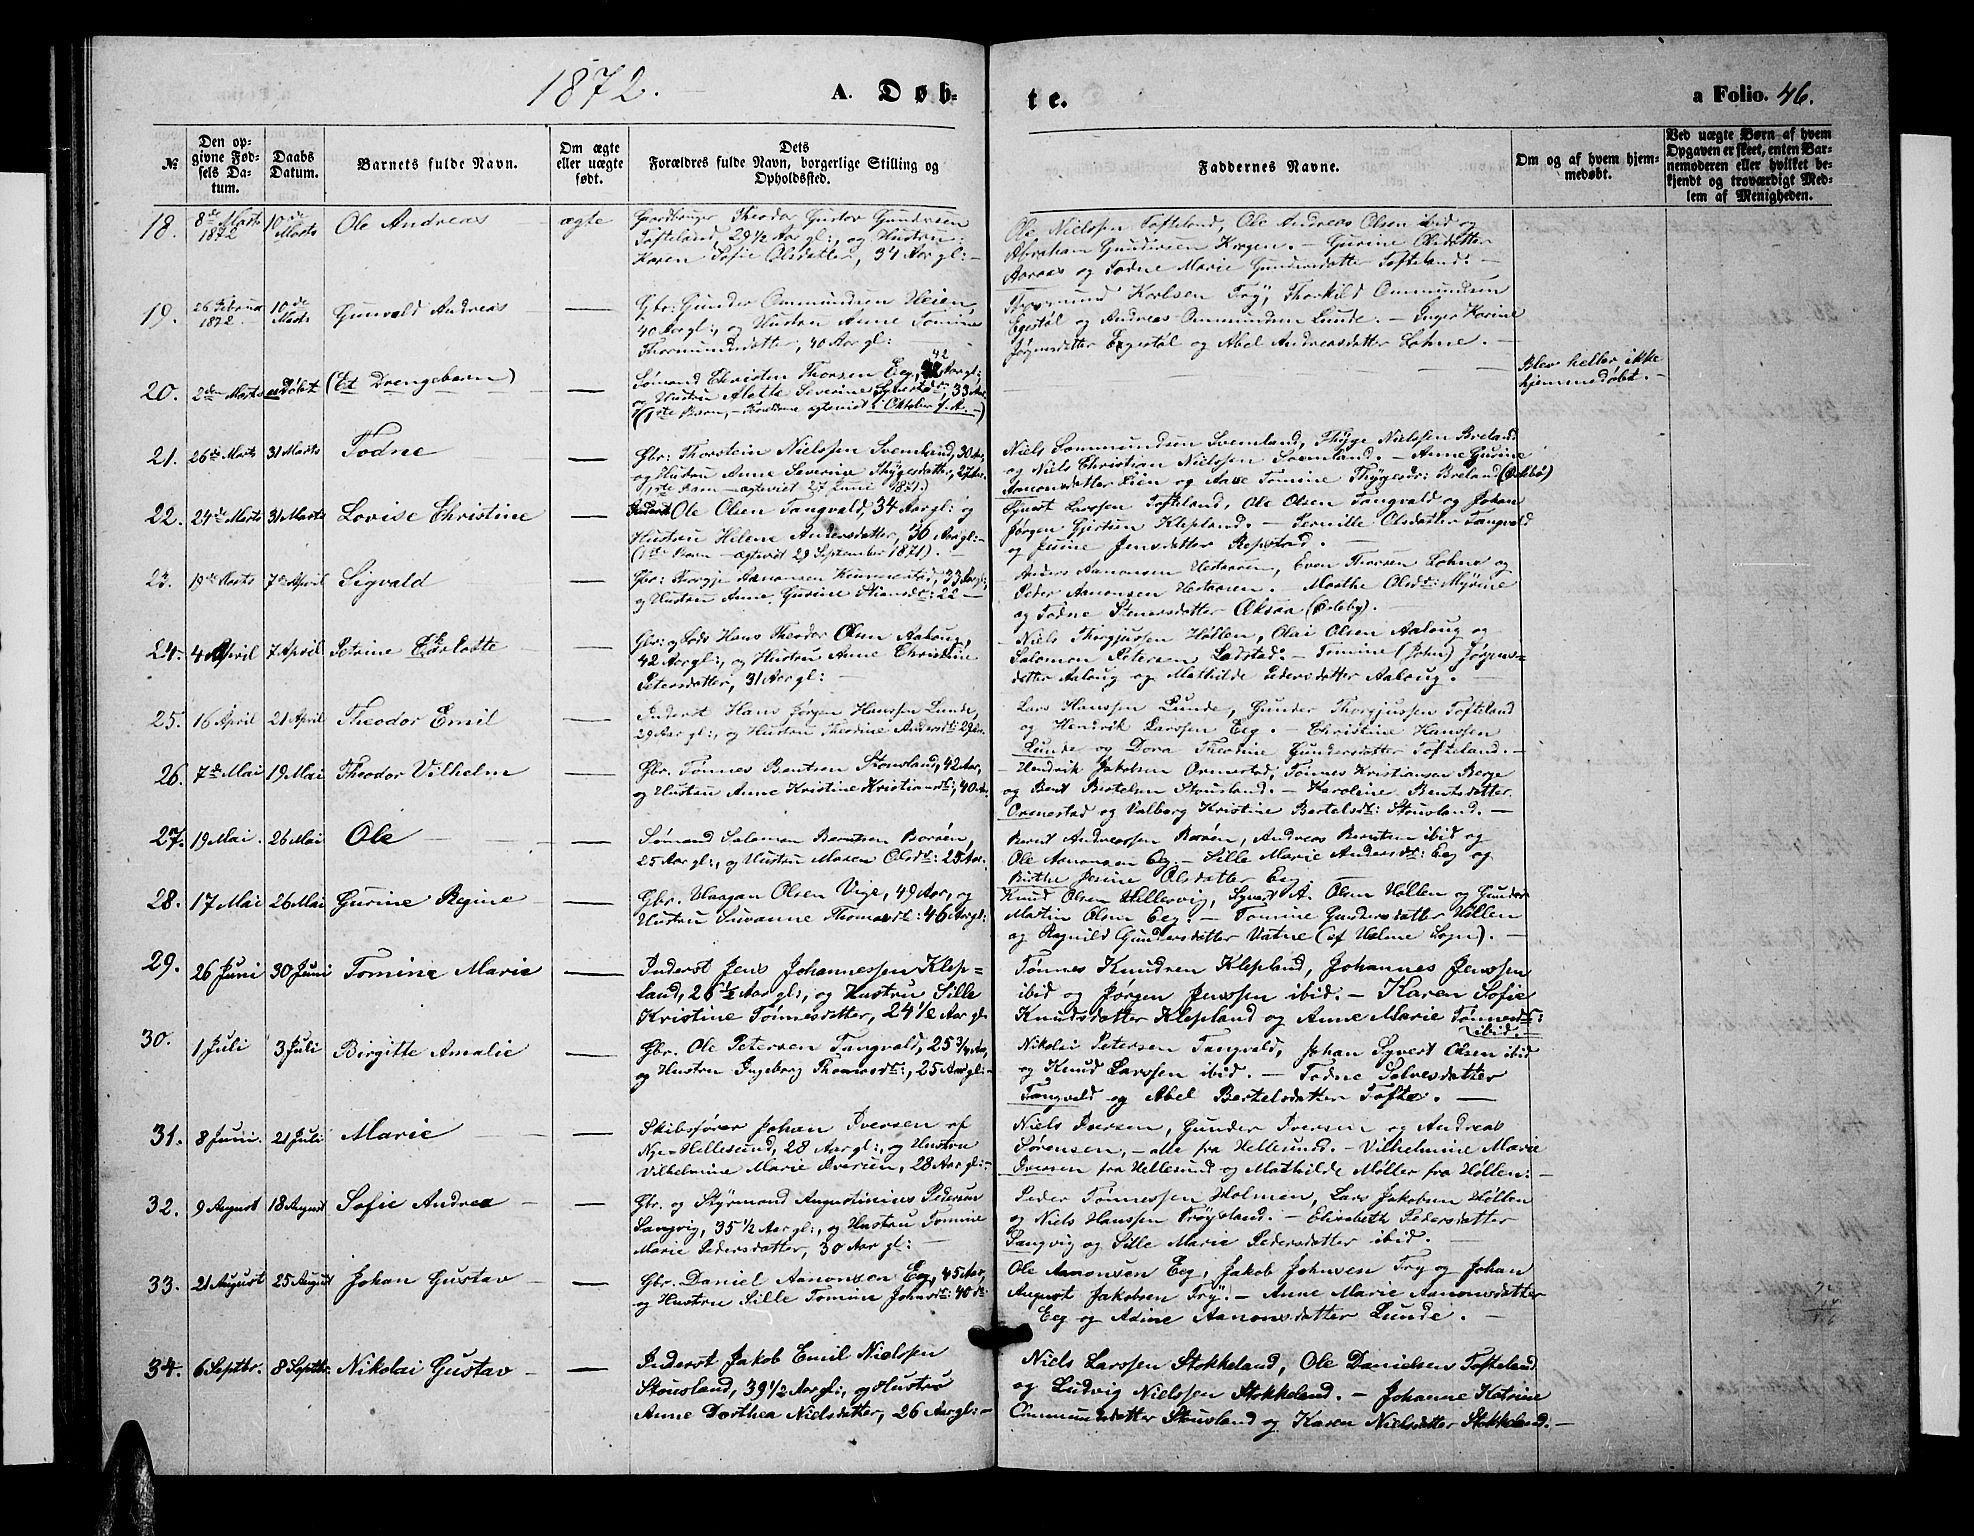 1872. A. Døb- te. a Folio. 46.
№ Den opgivne Fødsels Datum. Daabs Datum. Barnets fulde Navn. Om ægte eller uægte født. Dets Forældres fulde Navn, borgerlige Stilling og Opholdssted. Faddernes Navne. Om og af hvem hjemmedøbt. Ved uægte Børn af hvem Opgaven er skeet, enten Barnemoderen eller hvilket bekjendt og troværdigt Medlem af Menigheden.
18. 8de Marts 1872 10de Marts Ole Andreas ægte Gaardbruger Theodor Gustav Gundersen
Tofteland, 29 1/2 Aar gl:, og Hustru
Karen Sofie Olsdatter, 34 Aar gl:
Ole Nielssen Tofteland, Ole Andreas Olsen ibid og
Abraham Gundersen Krogen. – Gurine Olsdatter
Aaraas og Todne Marie Gundersdatter Tofteland. –
19. 26 Februa 1872. 10de Marts Gunvald Andreas — Gbr: Gunder Ommundsen Heien,
40 Aar gl:, og Hustru Anne Tomine
Thormundsdatter, 40 Aar gl:
Thormund Karlsen Try, Thorkild Ommundsen
Egestøl og Andreas Ommundsen Lunde. – Inger Karine
Jørgensdatter Egestøl og Abel Andreasdatter Lohne. –
20. 2den Marts udøbt (Et Drengebarn) — Sømand Christen Thorsen Eeg, 42 Aar gl:
og Hustru Alette Severine 33 Aar
(1ste Barn, – Forældrene ægteviet i Oktober f. A. –)
Blev heller ikke
hjemmedøbt. –
21. 26de Marts 31 Marts Todne — Gbr: Thorstein Nielssen Svemland, 30 Aar,
og Hustru Anne Severine Thygesdatter, 27 Aar.
(1ste Barn – ægteviet 27 Juni 1871.)
Niels Sommundsen Svemland, Thyge Nielssen Breland
og Niels Christian Nielssen Svemland. – Anne Gurine
Aanonsdatter Lien og Aase Tomine Thygesdr: Breland
22. 24de Marts 31 Marts Lovise Christine — Ole Olsen Tangvald, 34 Aar gl: og
Hustru Helene Andersdatter, 36 Aar gl: –
(1ste Barn – ægteviet 29 September 1871). –
Sjvert Larssen Tofteland, Ole Olsen Tangvald og Johan
Jørgen Gjertsen Klepland. – Pernille Olsdatter Tangvald
og Jesine Jensdatter Repstad. –
23. 19de Marts 7de April Sigvald — Gbr: Aanonsen 33 Aar gl:
og Hustru Anne Gurine 22 –
Anders Aanonsen Hestaaen, Even Thorsen Lohne og
Peder Aanonsen Hestaaen. – Marthe Olsdt:
og Todne Stenersdatter
24. 4 April 7 April Petrine Charlotte — Gbr: og Hans Theodor Olsen Aaloug,
42 Aar gl:, og Hustru Anne Christine
Petersdatter, 31 Aar gl: –
Niels Thorgjussen Høllen, Olai Olsen Aaloug og
Salomon Petersen Ladstad. – Tomine (John) Jørgens=
datter Aaloug og Mathilde Pedersdatter Aaloug.
25. 16 April 21 April Theodor Emil — Inderst Hans Jørgen Hanssen Lunde,
29 Aar gl:, og Hustru Theodine Andersdt: 29 Aar.
Lars Hanssen Lunde, Gunder Thorgjussen Tofteland
og Hendrik Larssen Eeg. – Christine Hanssen
Lunde og Dora Theodine Gundersdatter Tofteland. –
26. 7de Mai 19 Mai Theodor Vilhelm — Gbr. Tønnes Bentsen Stousland, 42 Aar,
og Hustru Anne Kristine Kristiansdt:, 40 Aar.
Hendrik Jakobsen Ormestad, Tønnes Kristiansen Berge
og Bent Bertelsen Stousland. – Karoline Bentsdatter
Ormestad og Valborg Kristine Bertelsdt: Stousland. –
27. 19 Mai. 26 Mai Ole — Sømand Salomon Berntsen Borøen,
25 Aar gl:, og Hustru Maren Olsdt: 25 Aar.
Bernt Andreassen Borøen, Andreas Berntsen ibid og
Ole Aanonsen Eeg. – Sille Marie Andersdt: Eeg og
Birthe Jesine Olsdatter Eeg. –
28. 17 Mai 26 Mai Gurine Regine — Gbr. Haagan Olsen Vige, 49 Aar, og
Hustru Susanne Thomasdt: 46 Aar gl:
Knud Olsen Hillervig, Syvert A. Olsen Høllen og Gunder
Martin Olsen Eeg. – Tomine Gundersdatter Høllen
og Ragnild Gundersdatter Vatne (af Halme Sogn). –
29. 26 Juni 30 Juni Tomine Marie — Inderst Jens Johannessen Klep=
land, 26 1/2 Aar gl:, og Hustru Sille
Kristine Tønnesdatter, 24 1/2 Aar gl.
Tønnes Knudsen Klepland, Johannes Jenssen
ibid og Jørgen Jenssen ibid. – Karen Sofie
Knudsdatter Klepland og Anne Marie Tønnesdt:
ibid. –
30. 1 Juli 3 Juli Birgitte Amalie — Gbr. Ole Petersen Tangvald, 25 3/4 Aar,
og Hustru Ingeborg Thomasdt:, 25 Aar gl: –
Nikolai Petersen Tangvald, Johan Syvert Olsen ibid
og Knud Larssen ibid. – Todne Salvesdatter
Tangvald og Abel Bertelsdatter Tofte. –
31. 8 Juni. 21 Juli Marie — Skibsfører Johan Iversen af
Ny-Hellesund, 28 Aar gl:, og Hustru
Vilhelmine Marie Iversen, 28 Aar gl: –
Niels Iversen, Gunder Iversen og Andreas
Sørensen, – alle fra Hellesund. – Vilhelmine Marie
Iversen fra Hellesund og Mathilde Møller fra Høllen: –
32. 9 August 18 August Sofie Andrea — Gbr. og Styrmand Augustinius Pedersen
Langvig, 35 1/2 Aar gl:, og Hustru Tomine
Marie Pedersdatter, 30 Aar gl: –
Peder Tønnessen Holmen, Lars Jakobsen Høllen
og Niels Hanssen Trøysland. – Elisabeth Pedersdatter
Langvig og Sille Marie Pedersdatter ibid. –
33. 21 August 25 August Johan Gustav — Gbr. Daniel Aanonsen Eeg, 45 Aar,
og Hustru Sille Tomine Johnsdt: 40 dt:
Ole Aanonsen Eeg, Jakob Johnsen Try og Johan
August Jakobsen Try. – Anne Marie Aanonsdatter
Eeg og Adine Aanonsdatter Lunde. –
34. 6 Septbr. 8 Septbr. Nikolai Gustav — Inderst Jakob Emil Nielssen
Stousland, 39 1/2 Aar gl:, og Hustru
Anne Dorthea Nielsdatter, 26 Aar gl: –
Niels Larssen Stokkeland, Ole Danielsen Tofteland
og Ludvig Nielssen Stokkeland. – Johanne Katrine
Ommundsdatter Stousland og Karen Nielsdatter Stokkeland. –